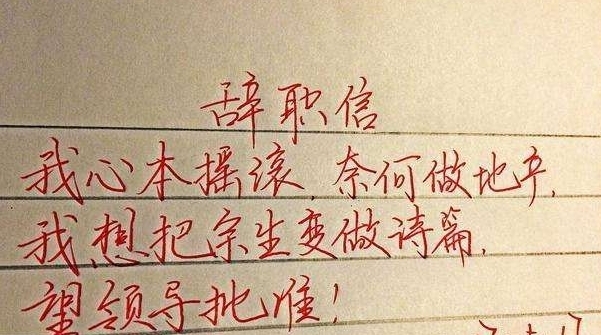 辞职信
我心本摇滚,奈何做地产,
我想把余生变做诗篇,
望领导批准!